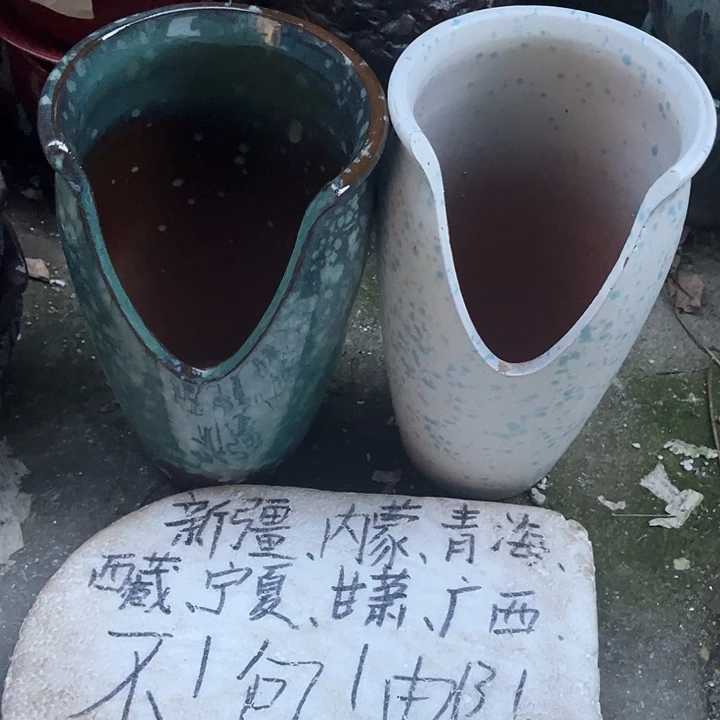 新疆、内蒙、青海、
西藏、宁夏、甘肃、广西.
不!包!邮!